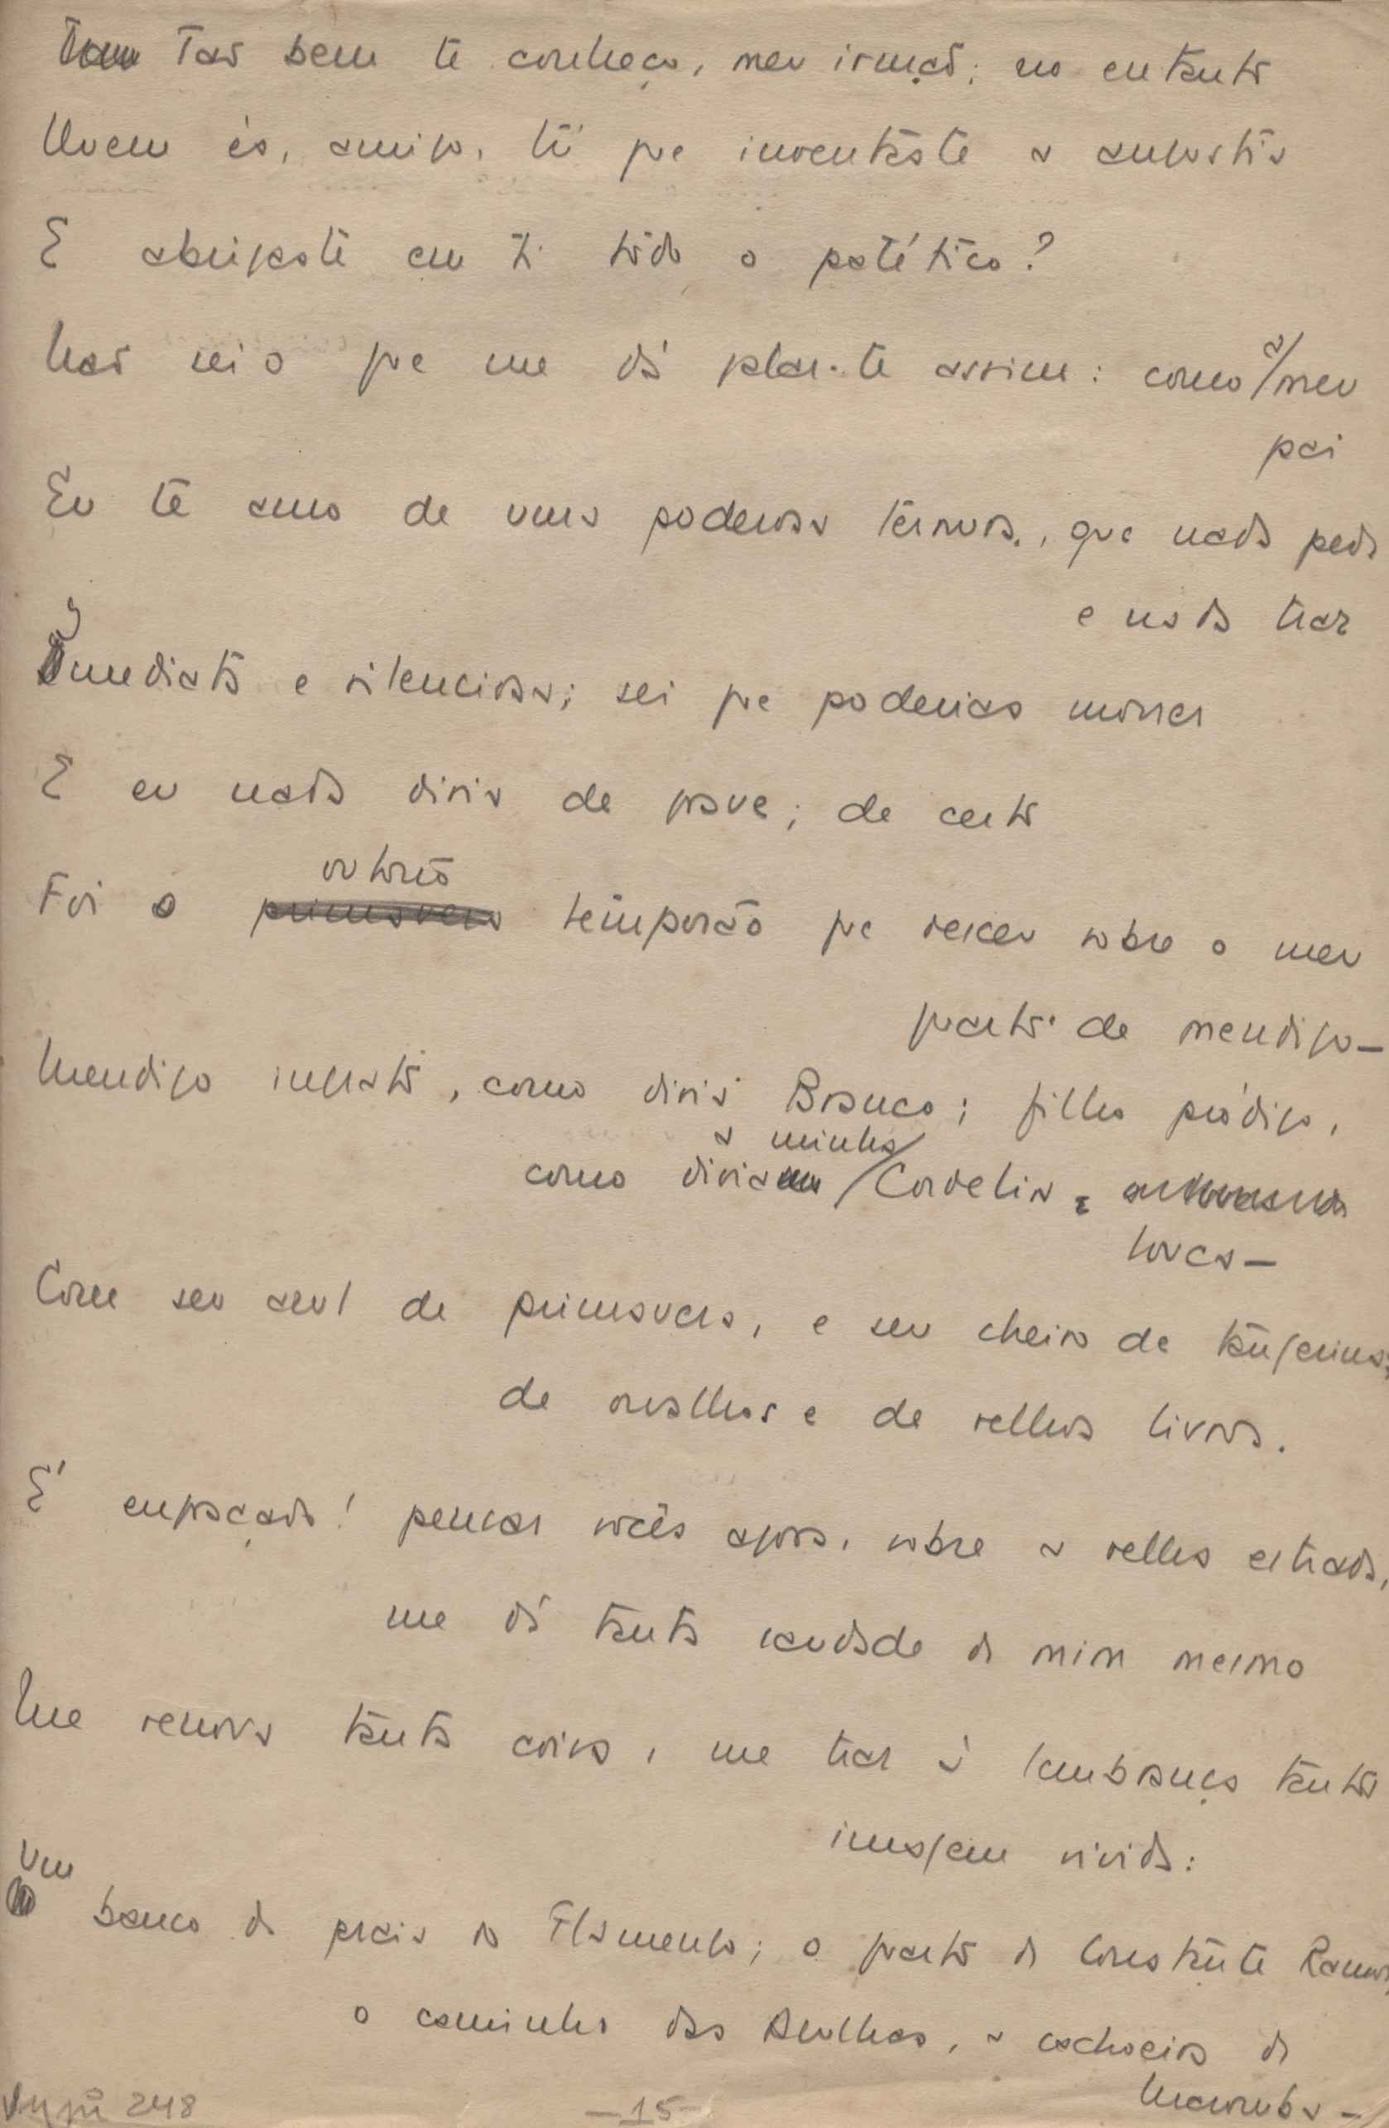 Tão bem te conheço, meu irmão; no entanto
Quem és, amigo, tu que inventaste a angústia
E abrigaste em ti todo o patético?
Não sei o que me dá falar-te assim: como a meu
pai
Eu te amo de uma poderosa ternura, que nada pede
e nada traz
Imediata e silenciosa; sei que poderias morrer
E eu nada diria de grave; de certo
Foi o outono temporão que desceu sobre o meu
quarto de mendigo —
Mendigo ingrato, como diria Branco; filho pródigo,
como diria a minha Cordelia,
louca —
Com seu azul de primavera, e seu cheiro de tangerinas,
de orvalhos e de velhos livros.
É engraçado! pensar vocês agora, sobre a velha estrada,
me dá tanta saudade de mim mesmo
Me renova tanta coisa, me traz à lembrança tanta
imagem vivida:
Um banco da praia do Flamengo; o quarto da Constante Ramos,
o caminho das Agulhas, a cachoeira de
Maromba —
248
— 15 —